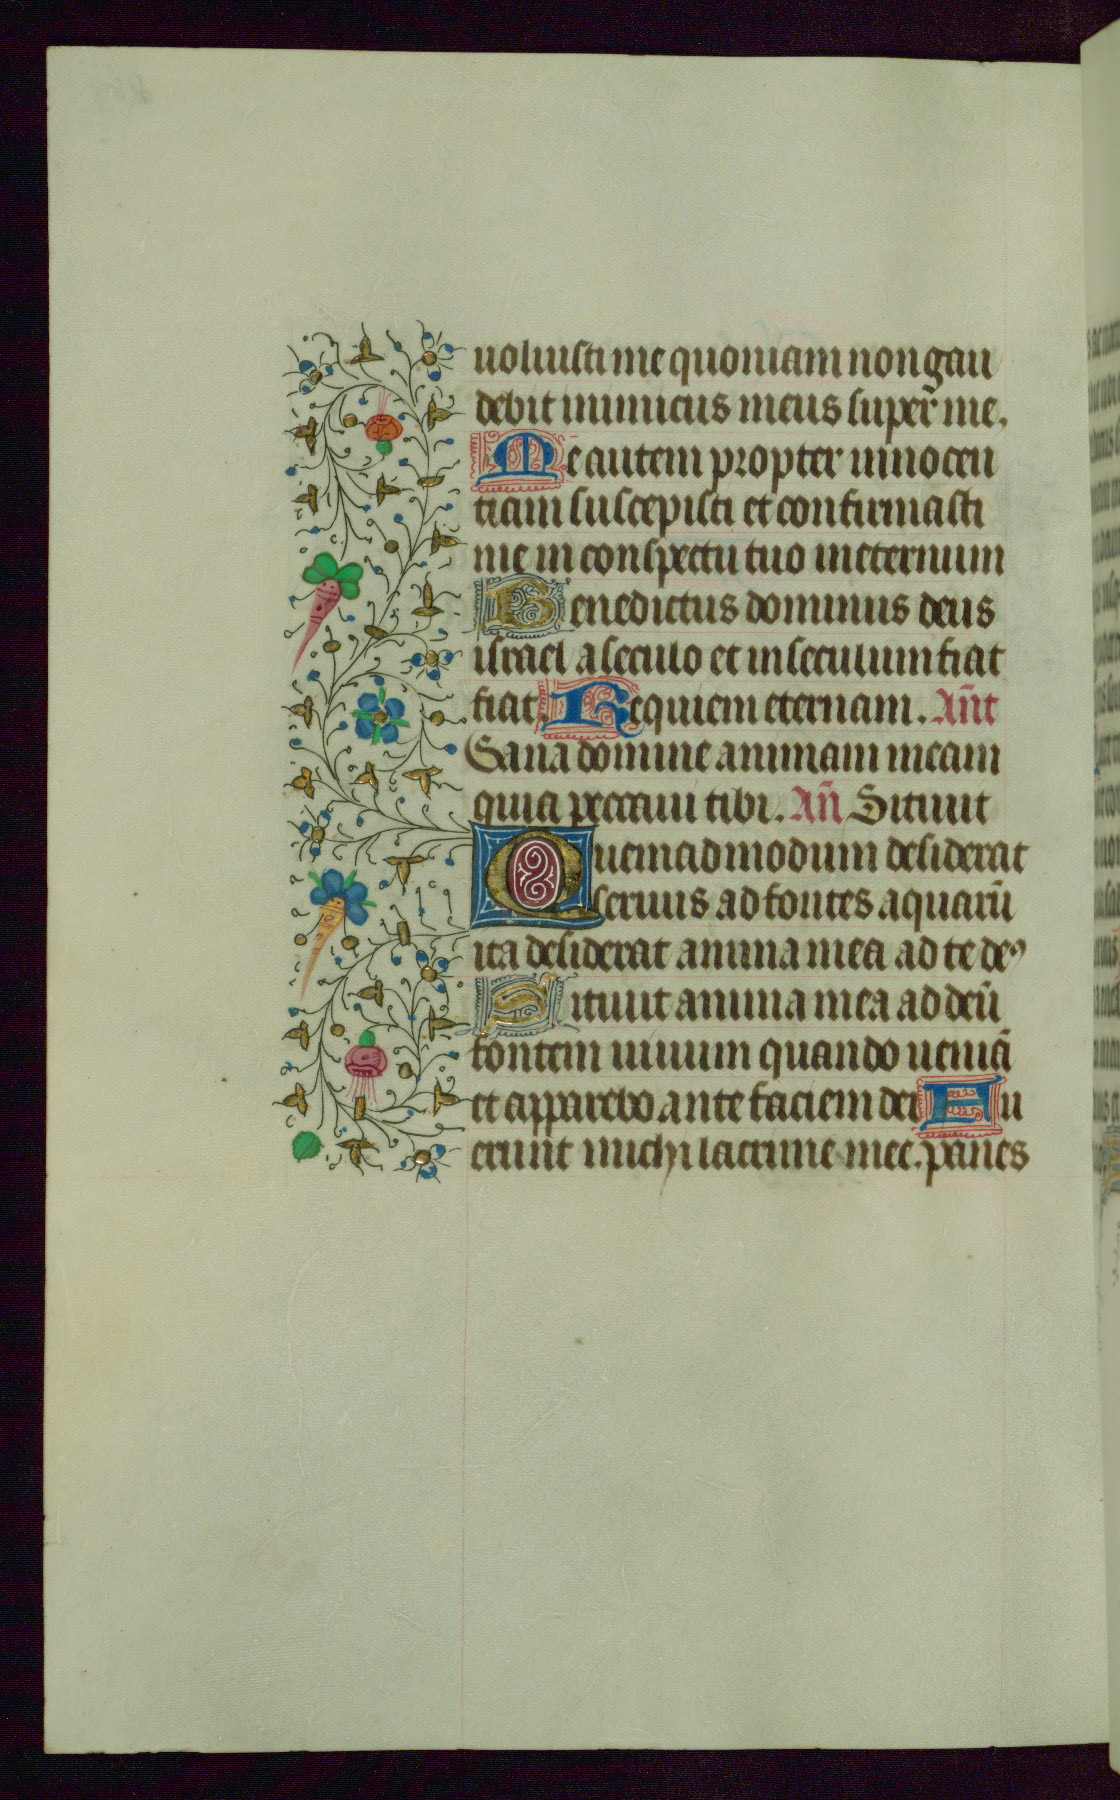 uoluisti me quoniam non gau
debit inimicus meus sup̄er me,
Me autem propter innocen
tiam suscepisti et confirmasti
me in conspectu tuo in eternum
Benedictus dominus deus
israel a seculo et in seculum fiat
fiat. Requiem eternam. An̄t
Sana domine animam meam
quia peccaui tibi. An̄ Sitiuit
Quemadmodum desiderat
seruus ad fontes aquarū
ita desiderat anima mea ad te deꝰ
Sitiuit anima mea ad deū
fontem uiuum quando ueniā
et apparebo ante faciem dei Fu
erunt michi lacrime mee. panes